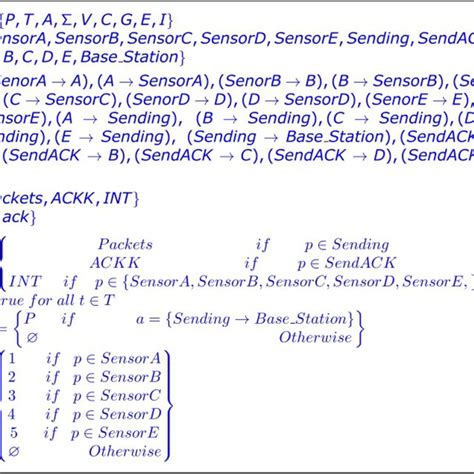 {P, T, A, Σ, V, C, G, E, I}
nsorA, SensorB, SensorC, SensorD, SensorE, Sending, SendAC
B, C, D, E, Base_Station}
SenorA → A), (A → SensorA), (SenorB → B), (B → SensorB), (Se
(C → SensorC), (SenorD → D), (D → SensorD), (SenorE → E),
nsorE), (A → Sending), (B → Sending), (C → Sending), (D
nding), (E → Sending), (Sending → Base_Station), (SendACK
(SendACK → B), (SendACK → C), (SendACK → D), (SendACK
ckets, ACKK, INT}
ack}
Packets if p ∈ Sending
ACKK if p ∈ SendACK
INT if p ∈ {SensorA, SensorB, SensorC, SensorD, SensorE, }
rue for all t ∈ T
= { P if a = {Sending → Base_Station} }
∅ Otherwise
1 if p ∈ SensorA
2 if p ∈ SensorB
3 if p ∈ SensorC
4 if p ∈ SensorD
5 if p ∈ SensorE
∅ Otherwise